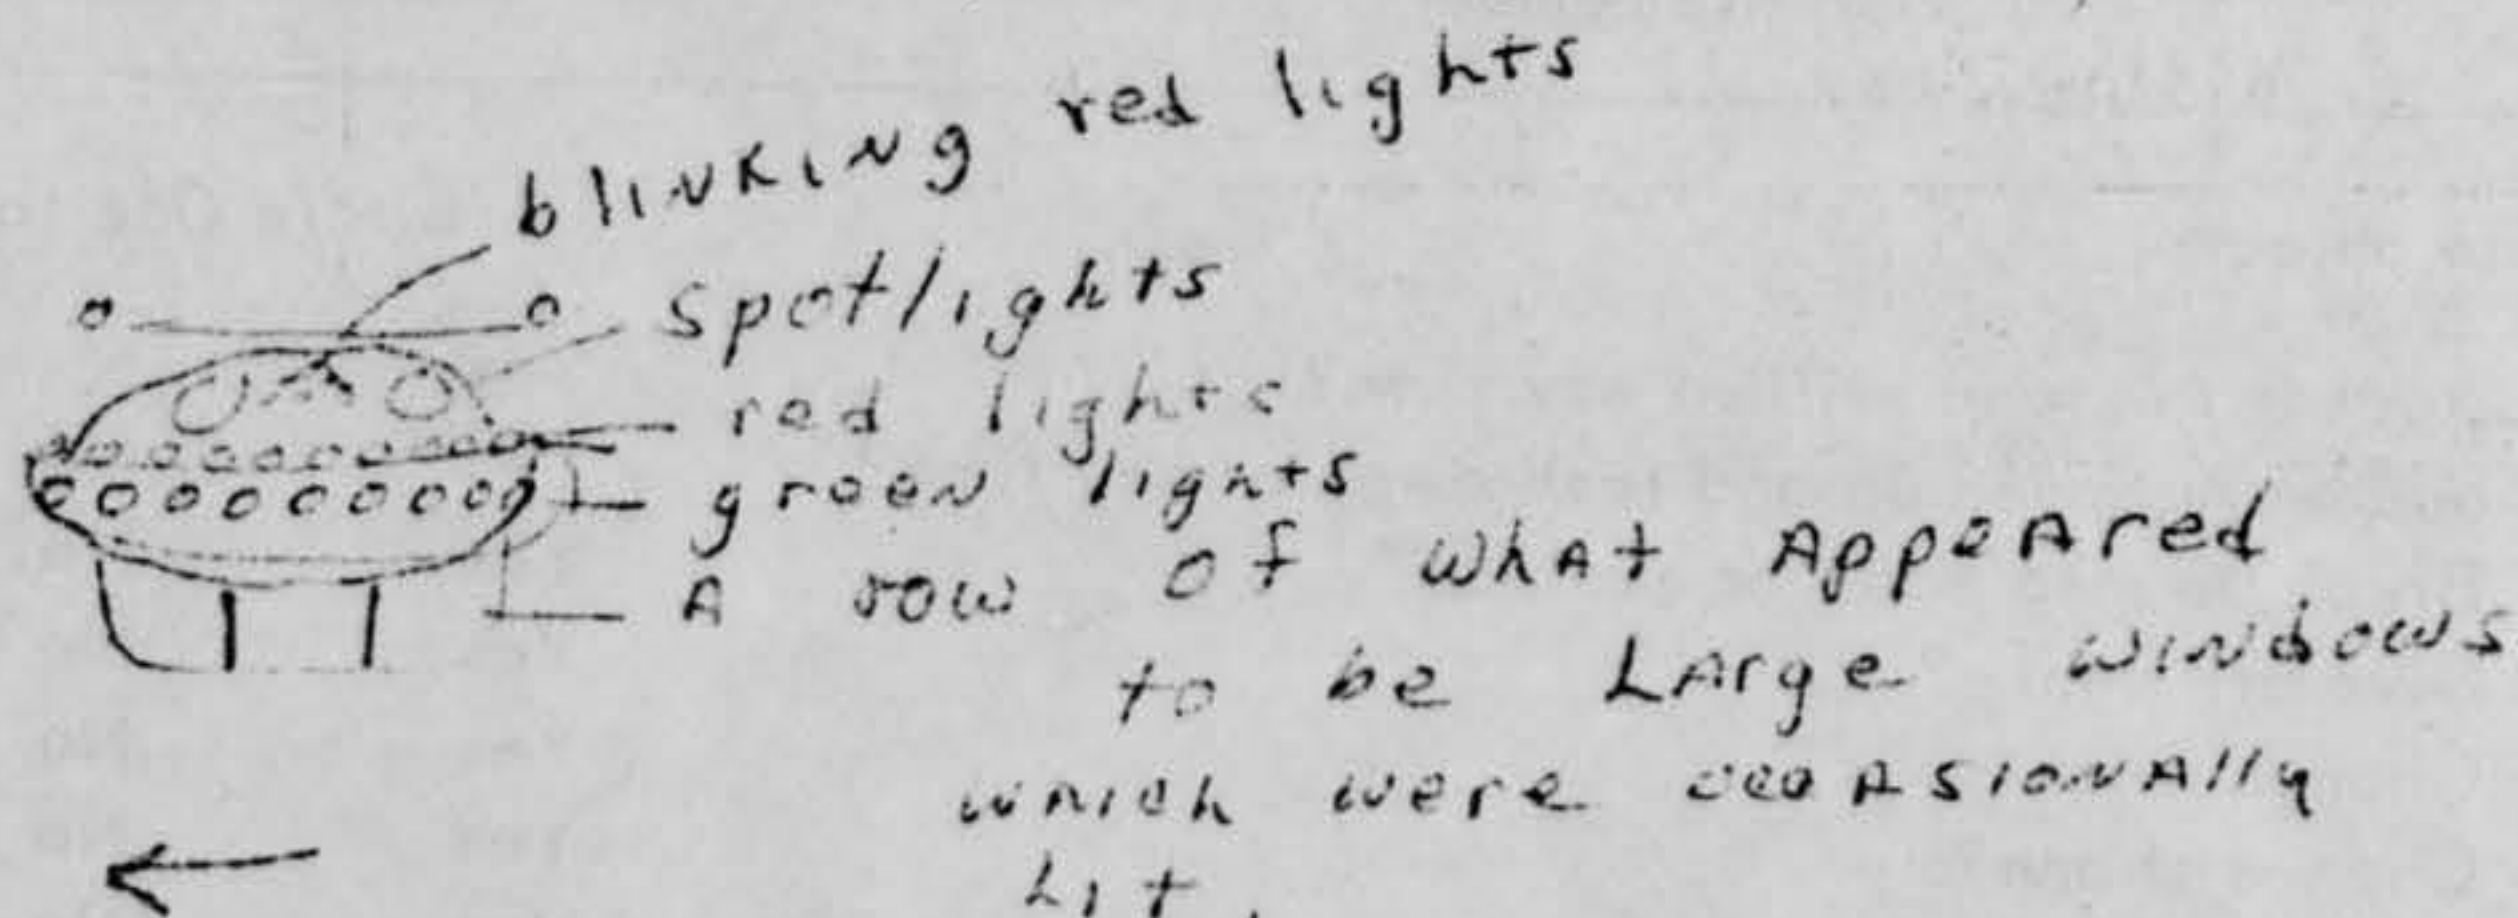 blinking red lights
spotlights
red lights
green lights
A row of what Appeared
to be Large windows
which were occasionally
Lit.